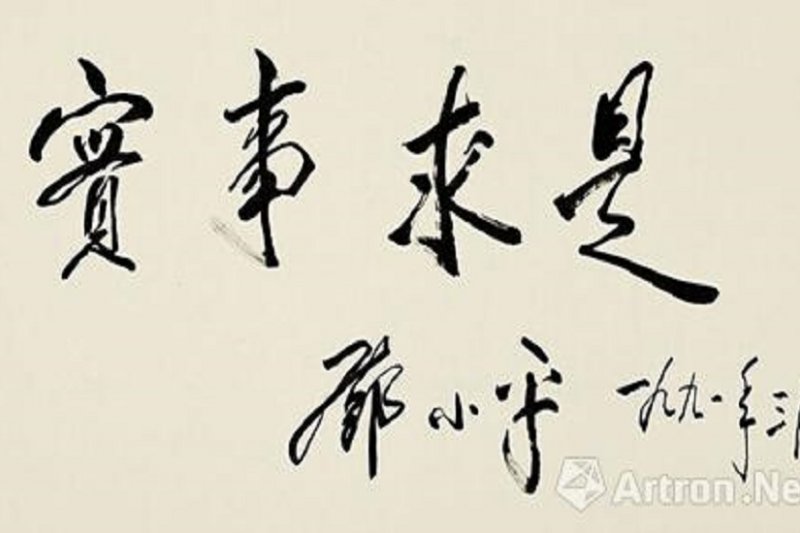 實事求是
鄧小平 一九九一年三
Artron.Ne